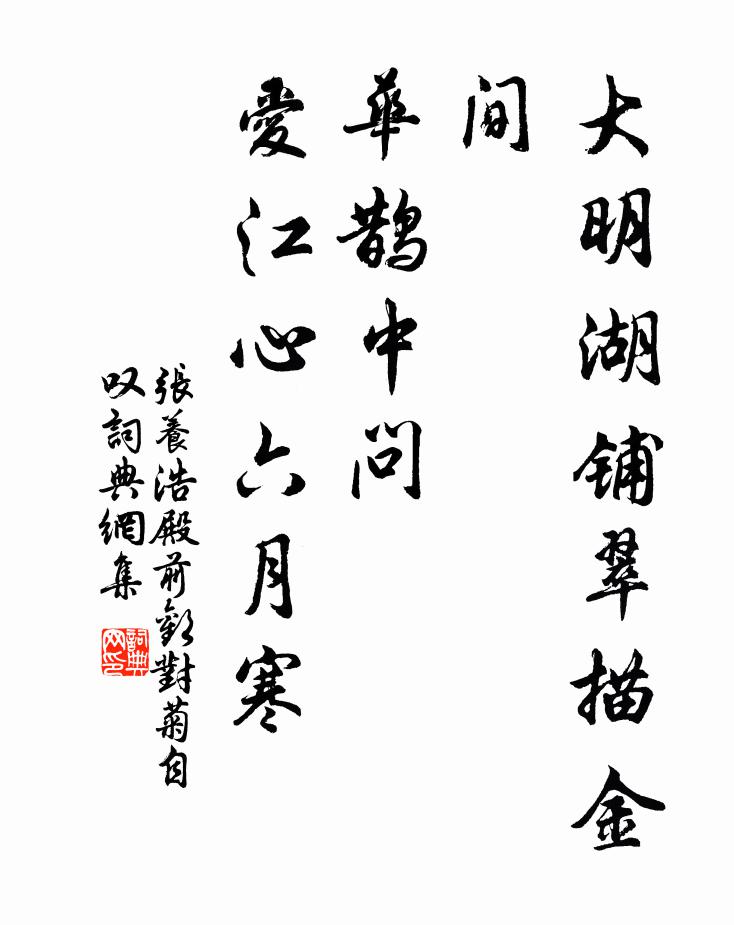 大明湖铺翠描金
间
華鹊中问
愛江心六月寒
張養浩殿前歡對菊自
叹詞典網集
詞典
网印